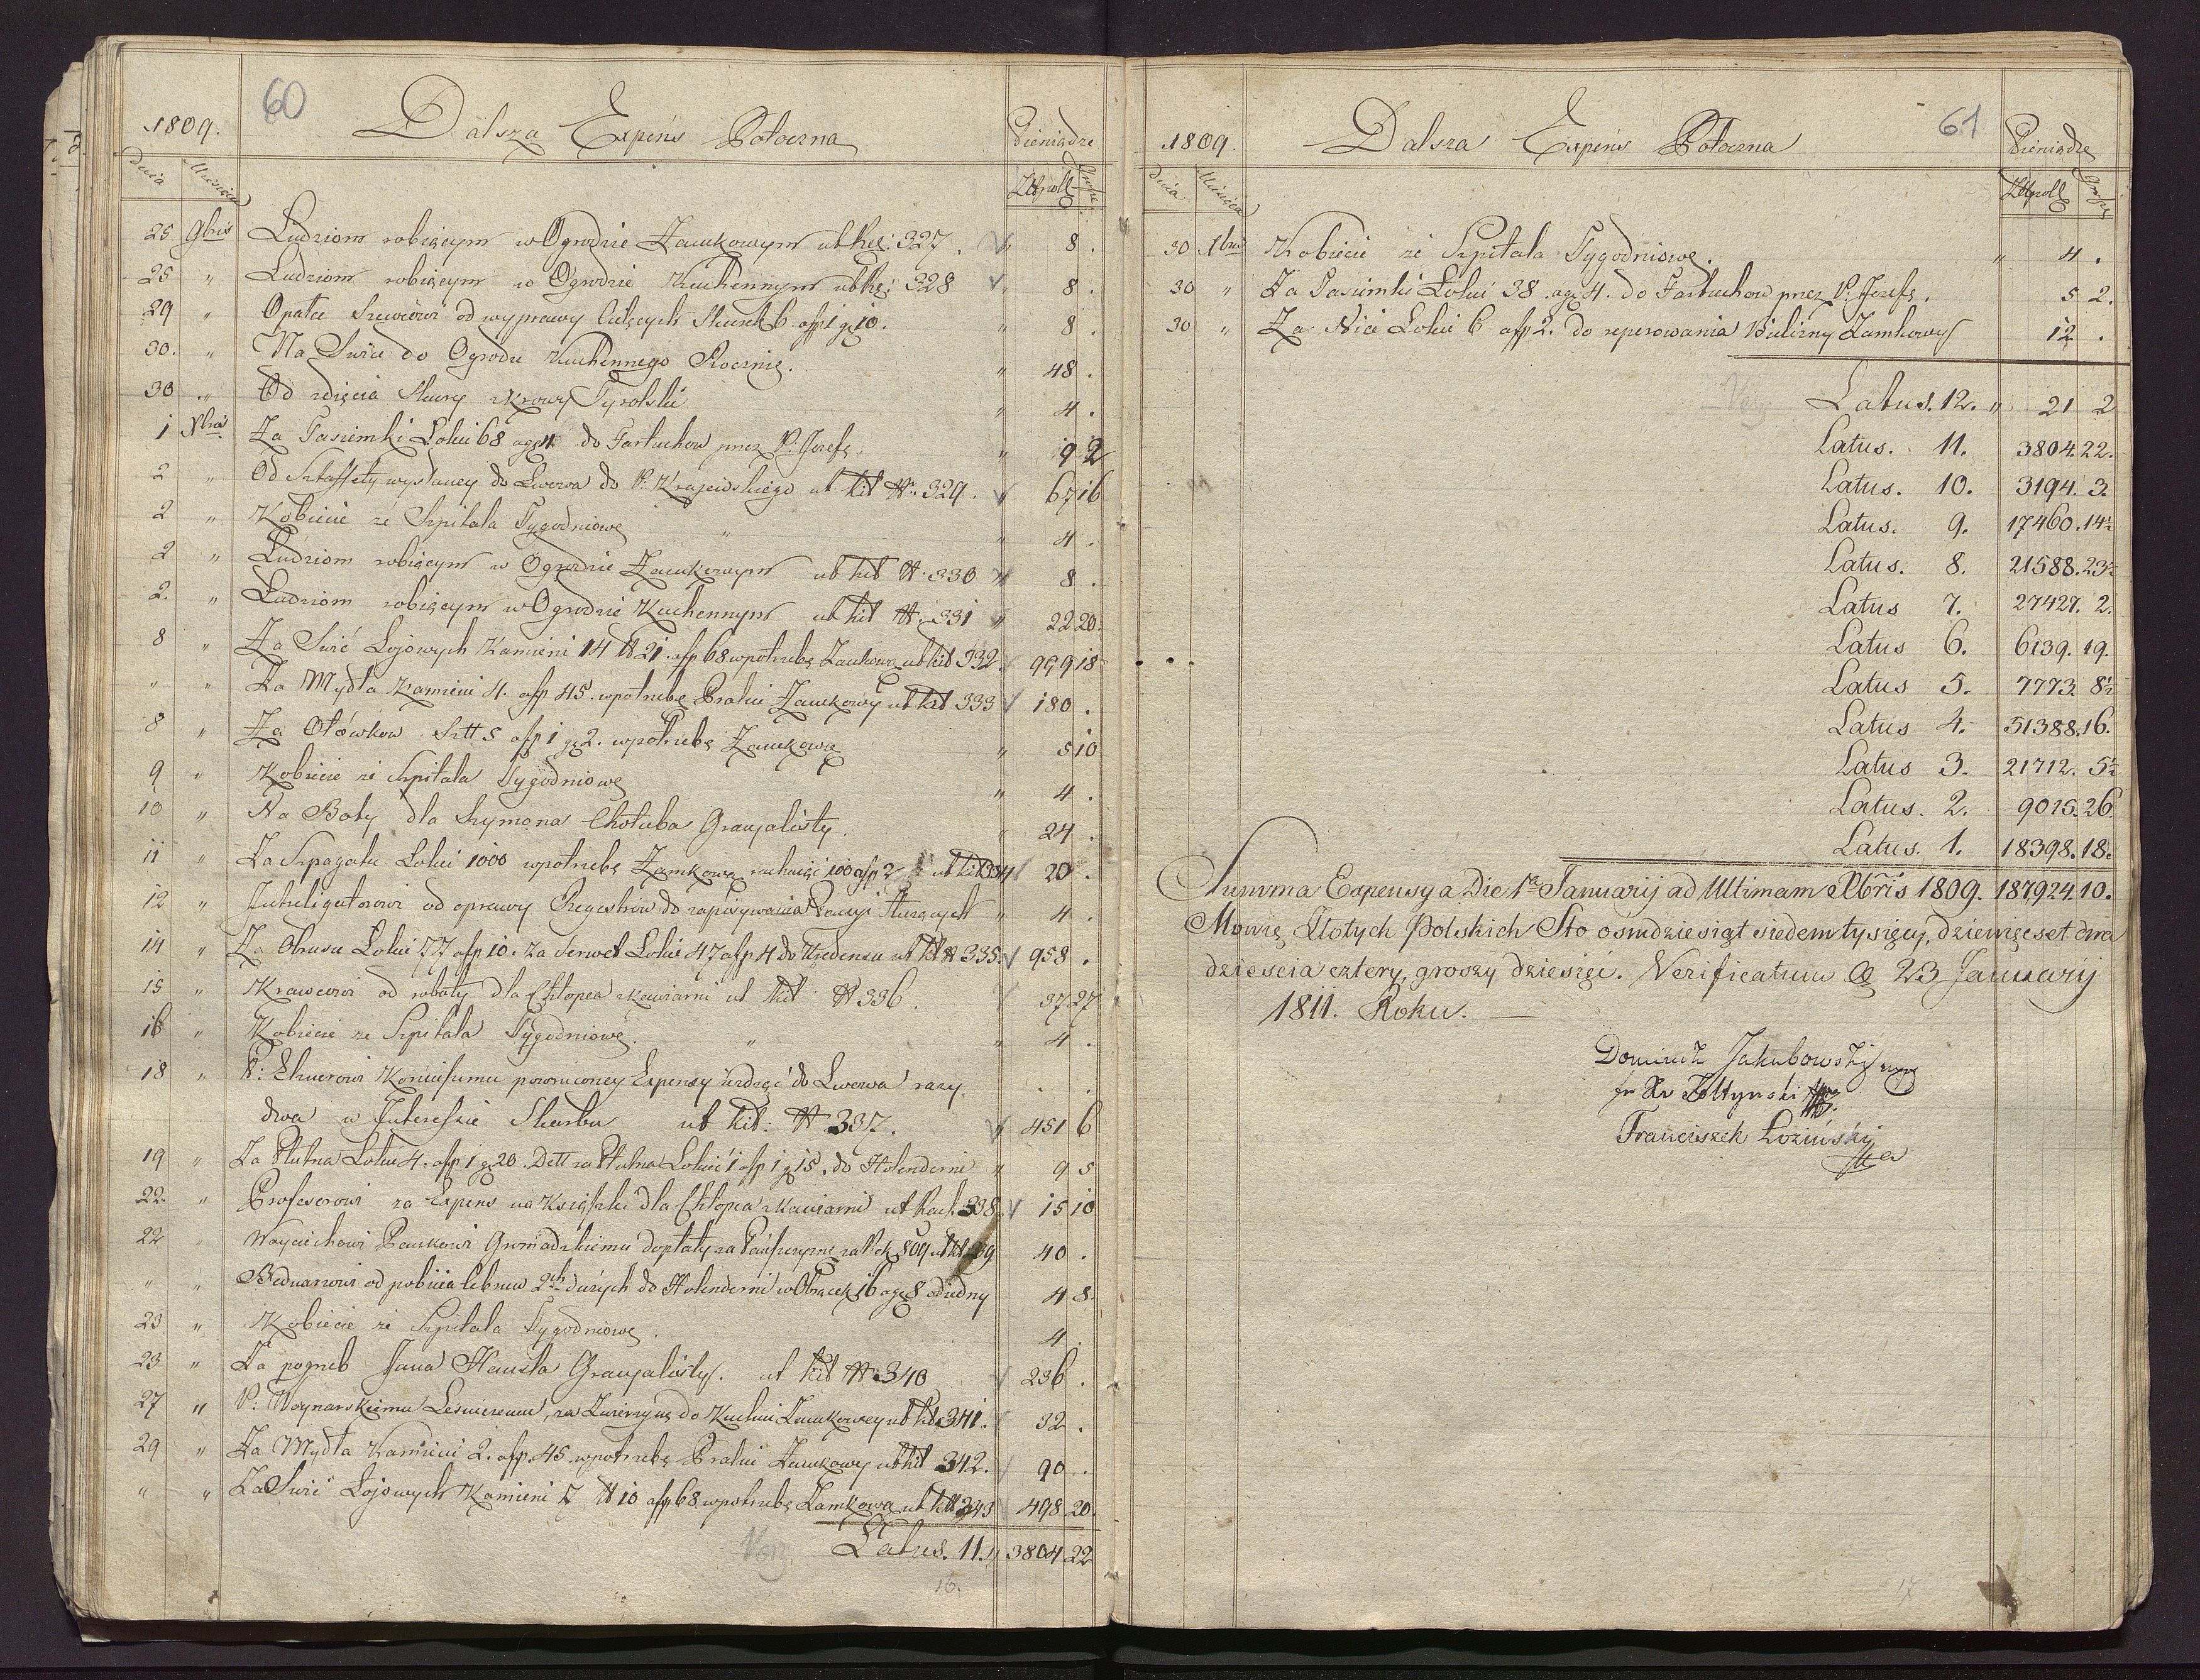 60
1809.
Dalsza Expens Potoczna
Pieniądze
Dnia Miesiąca
Złtpoll Grosze
25 9bris Ludziom robiącym w Ogrodzie Zamkowym ut kw: 327. 8 .
25 " Ludziom robiącym w Ogrodzie Kuchennym ut kw: 328 8 .
29 " od wyprawy Cielęcych Skurek 6. a fp 1 gr 10. 8 .
30. " Na Świce do Ogrodu Kuchennego Rocznie. " 48 .
30 " Od zdięcia Skury z krowy Tyrolski " 4 .
1 Xbris Za Tasiemki Lokci 68 a gr 4 do Fartuchow przez P: Jozefę. " 9 2
2 " Od Sztaffety wysłaney do Lwowa do P: Krajewskiego ut kit N: 329. 67 16
2 " Kobiecie ze Szpitala Tygodniowe " 4 .
2 " Ludziom robiącym w Ogrodzie Zamkowym ut kit N: 330 " 8 .
2. " Ludziom robiącym w Ogrodzie Kuchennym ut kit N: 331 " 22 20.
8 " Za Swic Łojowych Kamieni 14 ℔ 21. a fp 68 w potrzebę Zamkową ut kit 332. 999 18
" " Za Mydła Kamieni 4. a fp 45. w potrzebę Pralni Zamkowy ut kit 333 180 .
8 " Za Ołówkow Szt 5 a fp 1 gr 2. w potrzebę Zamkową " 5 10
9 " Kobiecie ze Szpitala Tygodniowe " 4 .
10 " Na Boty dla Szymona Chołuba Gracyalisty. " 24 .
11 " Za Szpagatu Lokci 1000 w potrzebę Zamkową rachując 100 a fp 2 ut kit 334 20 .
12 " Jntroligatorowi od oprawy Regestrów do zapisywania " 4 .
14 " Za Obrusu Lokci 77 a fp 10. Za Serwet Lokci 47 a fp 4 do Kredensu ut kit N 335. 958 .
15 " Krawcowi od roboty dla Chłopca z kawiarni ut kit N 336. 37 27
16 " Kobiecie ze Szpitala Tygodniowe. " 4 .
18 " P: Koniuszemu powroconey Expensy iezdząć do Lwowa razy . .
dwa w Jnteressie Skarbu ut kit: N 337. 451 6
19 " Za Płutna Lokci 4. a fp 1 gr 20. Dett za Płutna Lokieć 1 a fp 1 gr 15. do Holenderni " 9 5
22. " Profesorowi za Expens na Ksiąszki dla Chłopca z kawiarni ut Rach. 338. 15 10
22 " Woyciechowi Gromadzkiemu dopłaty za Pańszczyznę za Rok 809 ut kit 339 40 .
" " Bednarzowi od pobicia Cebrow 2ch duzych do Holenderni w Obręcze 16 a gr 8 od iedny 4 8.
23 " Kobiecie ze Szpitala Tygodniowe. 4 .
23 " Za pogrzeb Jana Gracyalisty. ut kit N 340 236 .
27 " P: Woynarskiemu Lesniczemu, za Zwierzynę do Kuchni Zamkowey ut kit 341. 32 .
29 " Za Mydła Kamieni 2. a fp. 45. w potrzebę Pralni Zamkowy ut kit 342. 90 .
" " Za Swic Łojowych Kamieni 7 ℔ 10 a fp 68 w potrzebę Zamkową ut kit 343 498. 20.
Latus. 11. " 3804 22
16.
61
1809.
Dalsza Expens Potoczna
Pieniądze
Dnia Miesiąca
Złtpoll Grosze
30 Xbris Kobiecie ze Szpitala Tygodniowe. " 4 .
30 " Za Tasiemki Lokci 38. a gr 4. do Fartuchow przez P: Jozefę. 5 2.
30 " Za Nici Lokci 6 a fp 2. do reperowania Bielizny Zamkowy 12 .
Latus. 12. " 21 2
Latus. 11. 3804. 22.
Latus. 10. 3194. 3.
Latus. 9. 17460. 14½
Latus. 8. 21588. 23½
Latus 7. 27427. 2.
Latus 6. 6139. 19.
Latus 5. 7773. 8½
Latus 4. 51388. 16.
Latus 3. 21712. 5½
Latus. 2. 9015. 26.
Latus. 1. 18398. 18.
Summa Expensy a Die 1a Januarij ad Ultimam Xbris 1809. 187,924. 10.
Mowię Złotych Polskich Sto osmdziesiąt siedem tysięcy, dziewięcset dwa
dziescia cztery, groszy dziesięć. Verificatum d 23 Januarij
1811. Roku. —
Dominik Jakubowski mp
Żołtynski
Franciszek Łoziński
17